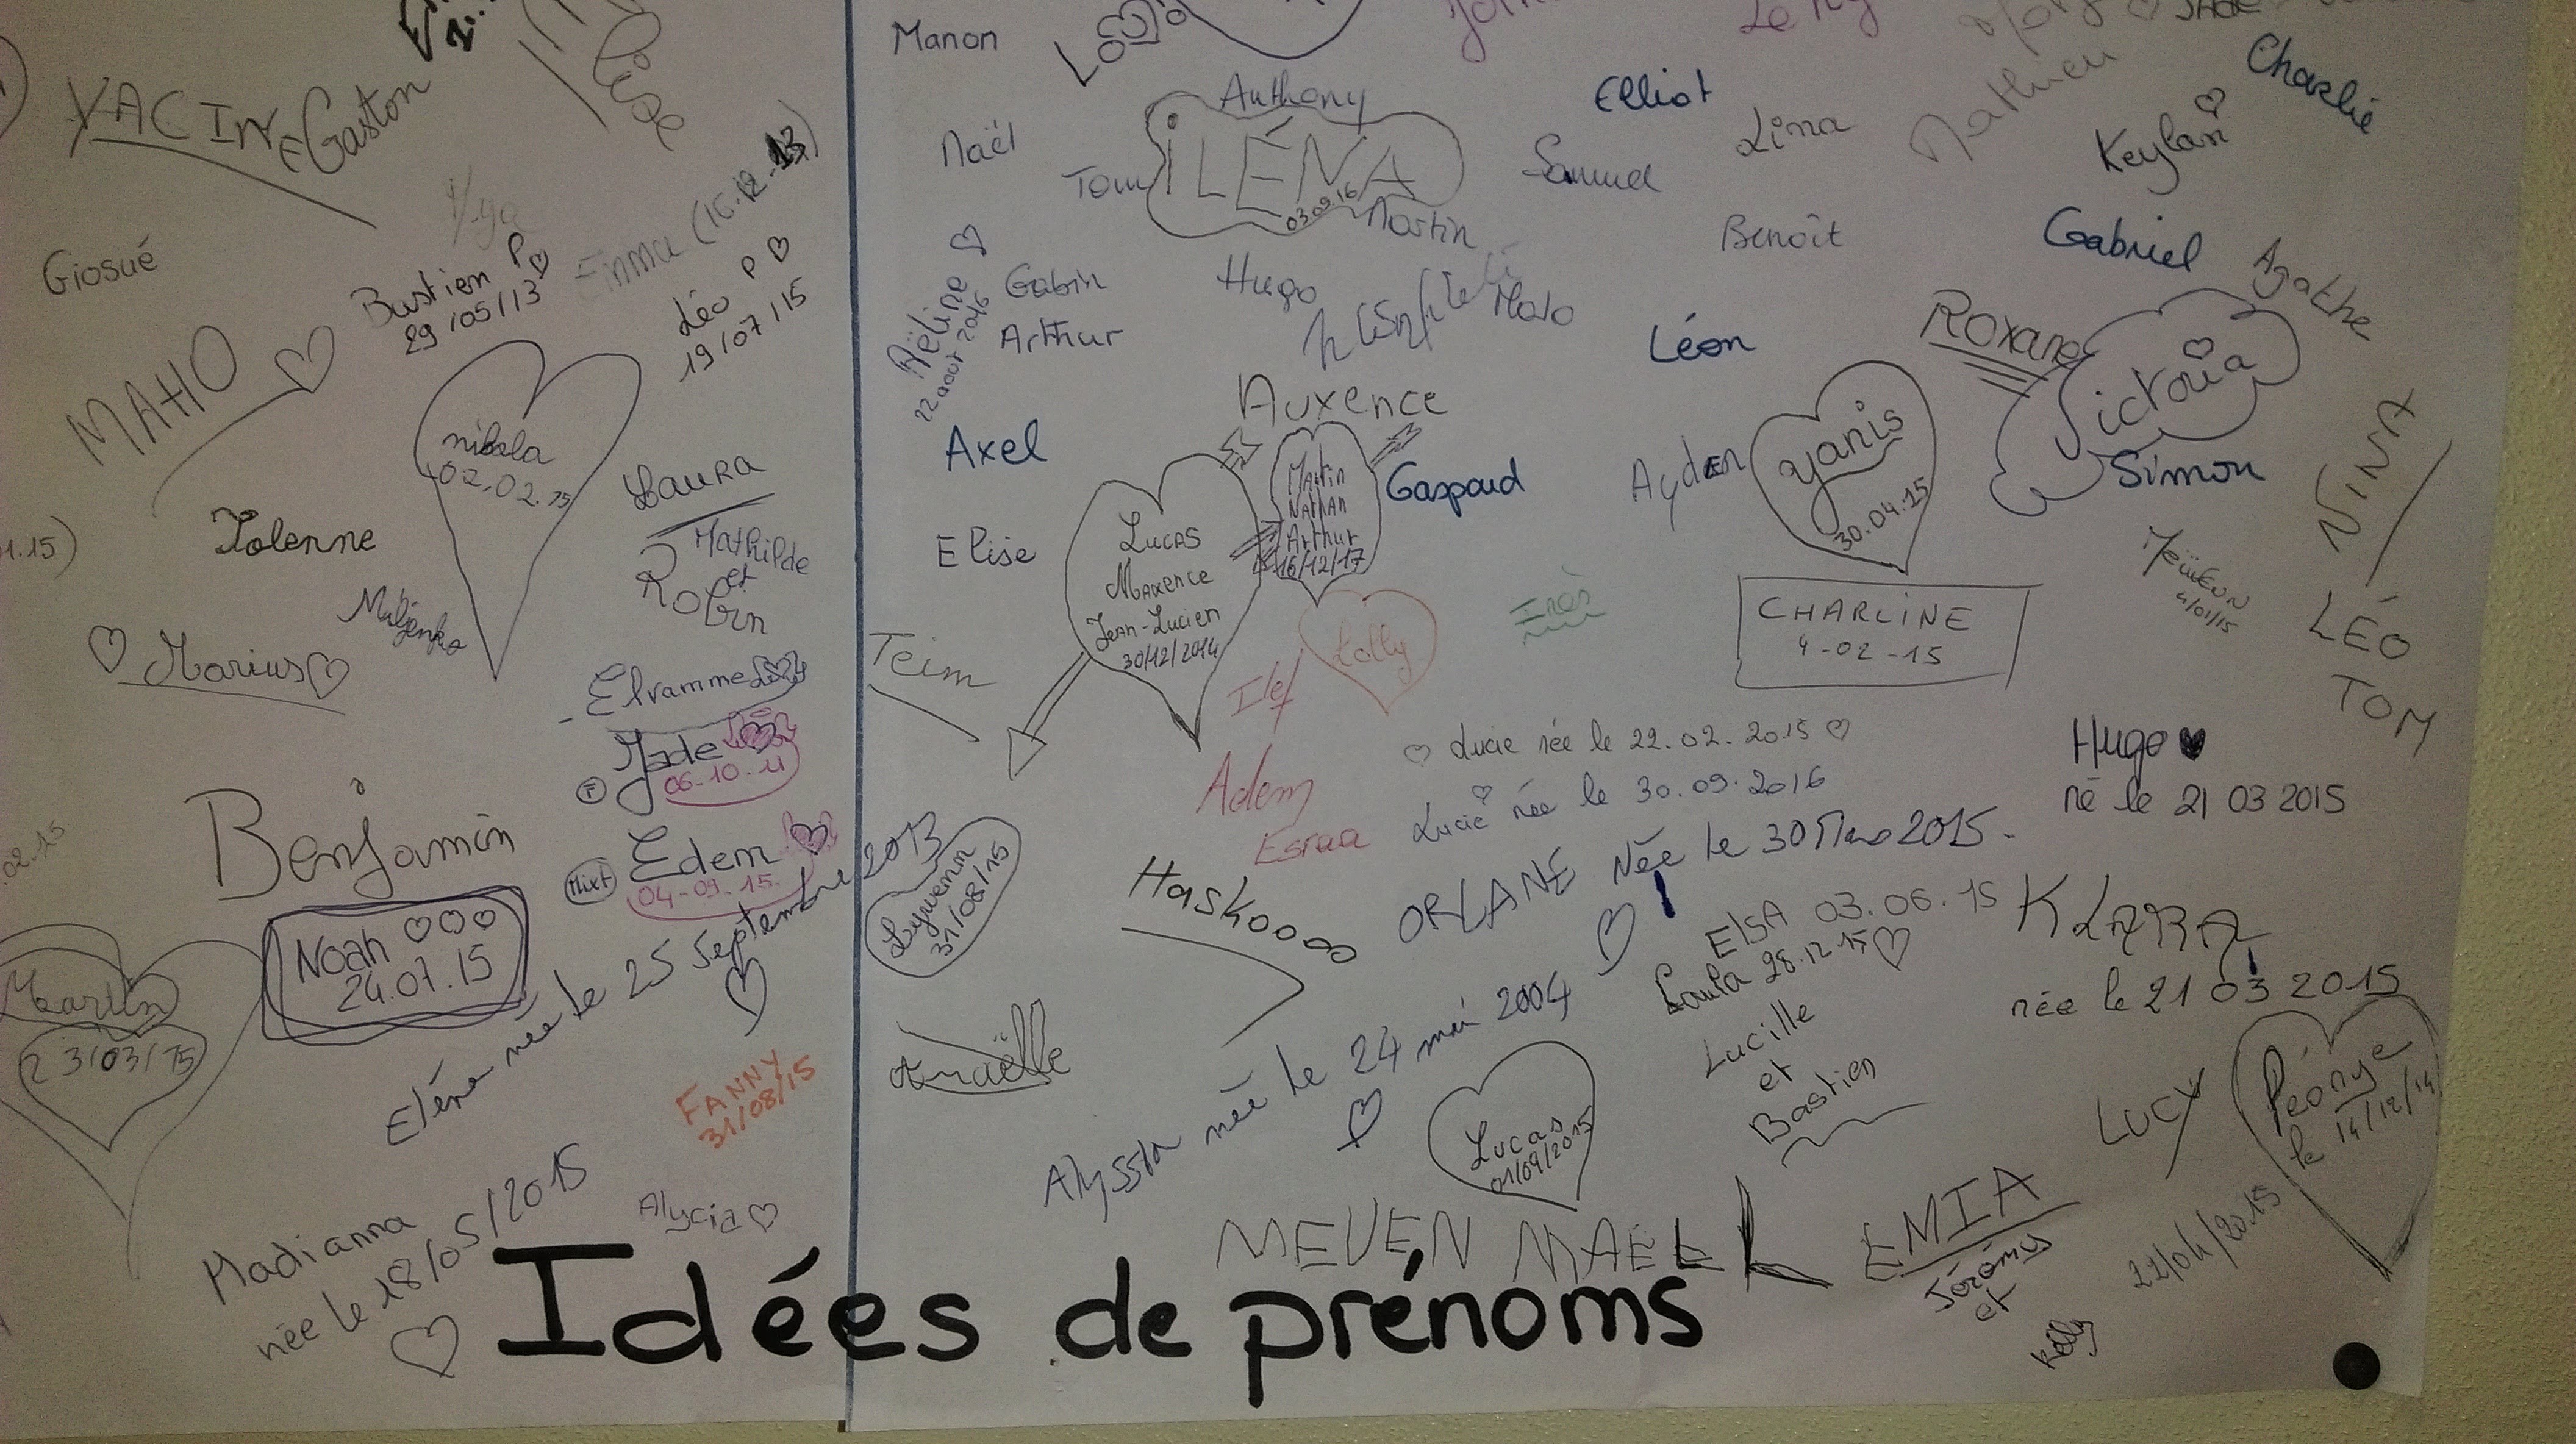 YACINE
Gaston
Giosué
Bastien P
29/05/13
Emma (16.12.13)
Léo P
19/07/15
MAHO
02.02.15
Laura
Mathilde
et
Robin
Marius
Elramme
Jade
06-10-11
F
Mixt
Edem
04-09-15
Benjamin
Noah
24.07.15
Martin
23/03/15
Eléna née le 25 Septembre 2013
FANNY
31/08/15
Madianna
née le 18/05/2015
Alycia
Manon
Anthony
Naël
Tom
ILÉNA
03.09.16
Martin
Elliot
Samuel
Lina
Mathieu
Keylan
Charlie
Benoît
Gabriel
Agathe
22 août 2016
Gabin
Arthur
Hugo
Malo
Léon
Roxane
Victoria
Simon
Axel
Auxence
Martin
Nathan
Arthur
16/12/17
Gaspard
Ayden
Yanis
30.04.15
NINA
Elise
Lucas
Maxence
Jean-Lucien
30/12/2014
Lolly
Inès
CHARLINE
4-02-15
4/01/15
LÉO
TOM
Teim
Adem
Esraa
Lucie née le 22.02.2015
Lucie née le 30.09.2016
Hugo
né le 21 03 2015
31/08/15
Haskoo
ORLANE Née le 30 Mars 2015.
ElSA 03.06.15
28.12.15
KLARA
née le 21 03 2015
Anaëlle
Alyssia née le 24 mai 2004
Lucas
01/09/2015
Lucille
et
Bastien
LUCY
Péonye
le 14/12/14
MEVEN MAËL
EMIA
Jérémy
et
Kelly
22/04/2015
Idées de prénoms